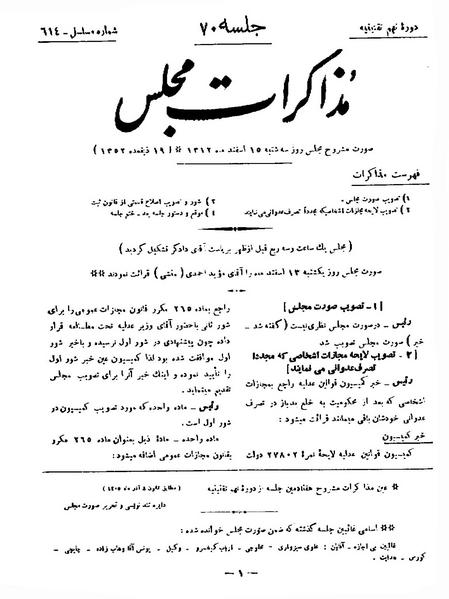 دورهٔ نهم تقنینیه
جلسه ۷۰
شماره مسلسل - ۶۱۴
مذاکرات مجلس
صورت مشروح مجلس روز سه شنبه ۱۵ اسفند ماه ۱۳۱۲ * (۱۹ ذیقعده ۱۳۵۲)
فهرست مذاکرات
۱) تصویب صورت مجلس.
۲) تصویب لایحه مجازات اشخاصیکه مجدداً تصرف عدوانی می‌نمایند
۳) شور و تصویب اصلاح قسمتی از قانون ثبت
۴) موقع و دستور جلسه بعد - ختم جلسه
(مجلس یك ساعت وسه ربع قبل از ظهر بریاست آقای دادگر تشکیل گردید)
صورت مجلس روز یکشنبه ۱۳ اسفند ماه را آقای مؤید احمدی (منشی) قرائت نمودند **
[۱- تصویب صورت مجلس]
رئیس - در صورت مجلس نظری نیست (گفته شد -
خیر) صورت مجلس تصویب شد
[۲ - تصویب لایحه مجازات اشخاصی که مجدداً
تصرف عدوانی می نمایند]
رئیس - خبر کمیسیون قوانین عدلیه راجع بمجازات
اشخاصی که بعد از محکومیت به خلع ید باز در تصرف
عدوانی خودشان باقی میمانند قرائت میشود:
خبر کمیسیون
کمیسیون قوانین عدلیه لایحهٔ نمرهٔ ۲۷۸۰۲ دولت
راجع بماده ۲۶۵ مکرر قانون مجازات عمومی را برای
شور ثانی باحضور آقای وزیر عدلیه تحت مطالعه قرار
داده چون پیشنهادی در شور اول نرسیده و باخبر شور
اول موافقت شده بود لذا کمیسیون عین خبر شور اول
را تأیید نموده و اینك خبر آنرا برای تصویب مجلس
تقدیم مینماید.
رئیس - ماده واحده که مورد تصویب کمیسیون در
شور اول است.
ماده واحده - مادهٔ ذیل بعنوان ماده ۲۶۵ مکرر
بقانون مجازات عمومی اضافه میشود:
* عین مذاکرات مشروح هفتادمین جلسه از دوره نهم تقنینیه
(مطابق قانون ۸ آذر ماه ۱۳۰۵)
دایره تند نویسی و تحریر صورت مجلس
** اسامی غائبین جلسه گذشته که ضمن صورت مجلس خوانده شده:
غائبین بی اجازه - آقایان: علوی سبزواری - - ارباب کیخسرو - وکیل - یونس آقا وهاب زاده - چایچی -
- هدایت.
- ۱ -